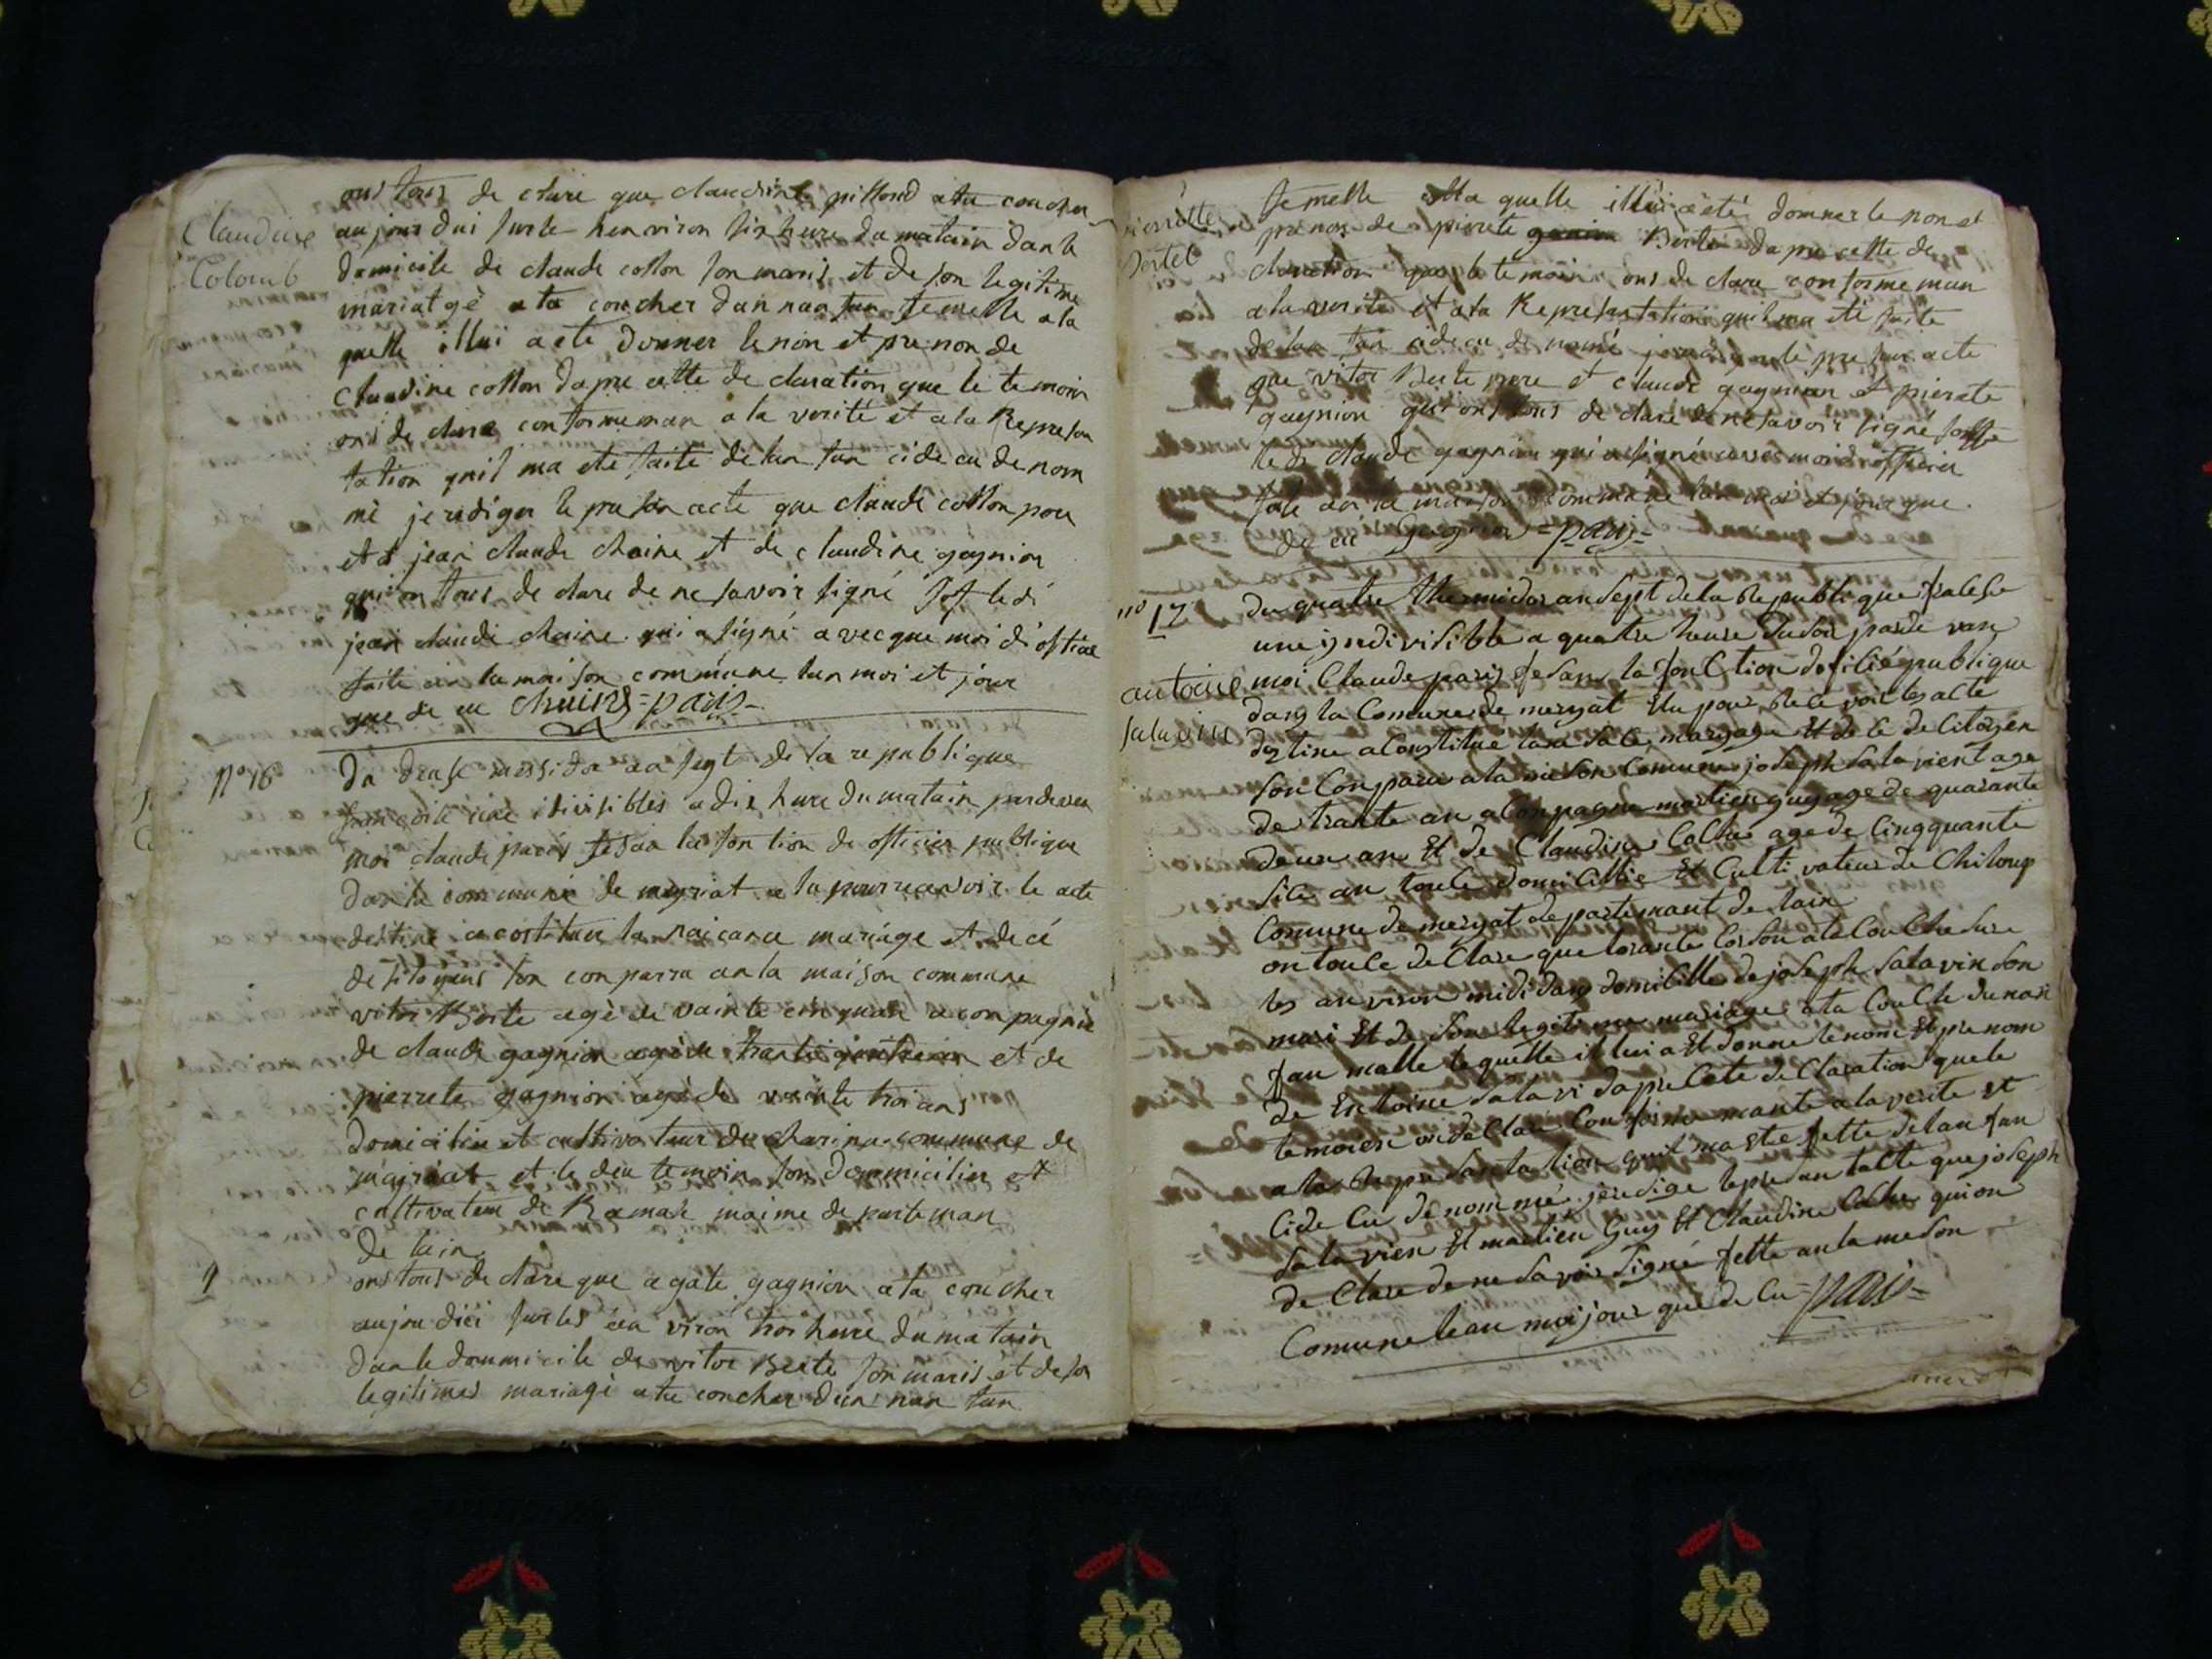 Claudine
Colomb
ons tous de clare que claudine pittond a tu coucher
aujourdui sur le henviron six heure du matain dan le
domicile de claude collon son maris et de son legitime
mariatgè a ta coucher dun nan fan femelle a la
quelle illui a ete donner le non et prenon de
claudine collon dapre cette de claration que le temoin
ons de clare conformeman a la verité et a la Represan
tation quil ma ete faite de lan fan ci de cu de nom
mé je rediger le presan acte que claude collon pere
et d jean claude chaine et de claudine gagnion
qui on tous de clare de ne savoir signé soff le di
jean claude chaine qui a signé avecque moi di oficie
faite an la maison commune lan moi et jour
que de cu chaine = paris
n° 16
Du douse messidor an sept de la republique
francoise une idivisibles a dix heure du matain pardevan
moi claude paris fesan la fontion de officier publique
dan la commune de meyriat elu pour recevoir le acte
destine a costituer la naicance mariage et de cé
de sitoyens son conparru an la maison commune
vitor Berte agè de vainte cinquan aconpagnié
de claude gagnion agè de et de
pierrete gagnion agè de vainte troi ans
domicilie et cultivateur de charina commune de
mairiat et le deu temoin son dommicilier et
cultivateur de Ramase maime de parteman
de lain
ons tous de clare que agate gagnion a ta coucher
aujourdici sur les anviron troi heure du matain
dan le dommicile de vitor Berte son maris et de son
legitimes mariagè a tu coucher dun nan fan
pierrette
Bertet
femelle a la quelle illui a été donner le non et
prenon de pierete Berte dapre cette de
claration que le temoin ons de clare conformeman
a la verité et a la Represantation quil ma été faite
de lan fan ci de cu de nomé je redigé le presan acte
que vitor Berte pere et claude gagnion et pierete
gagnion qui ons tous de clare de ne savoir signé soffe
le di claude gagnion qui a signé avec moi di officier
fate an la maison commune lan moi et jour que
de cu gagnion = paris =
n° 17
antoine
salavin
du quatre thermidor an sept de la Republique fralese
une indivisible a quatre heure du soir parde van
moi Claude paris fesans la fonction dofisie publique
dans la Comune de meryat Elu pour Recevoir les acte
destine a Constitue lane sa ce maryage Et de ce de Citoyen
son Conparu a la meson Comune joseph salavient age
de trante an aConpagne martien guy age de quarante
deux an Et de Claudine Colhe age de Cinqquante
sice an touce domicillie Et Cultivateur de Chiloup
Comune de meryat departemant de lain
on touce de Clare que lorante Corson a te Couche sure
les anviron midi dans domicille de joseph salavin son
mari Et de son legitime mariage a ta Couche dunan
fan malle lequelle il lui a Et donne le nome Et prenom
de Entoine salavi dapre Cete de Claration que le
temoien on de Clare Conforme mante a la verite Et
a la Represantation quil ma Ete fette de lan fan
Cide Cu de nommé je redige le presan tacte que joseph
salavien Et martien Guy Et Claudine Colhe qui on
de Clare de ne savoir signé fette an la meson
Comune le an moi jour que de Cu = paris =